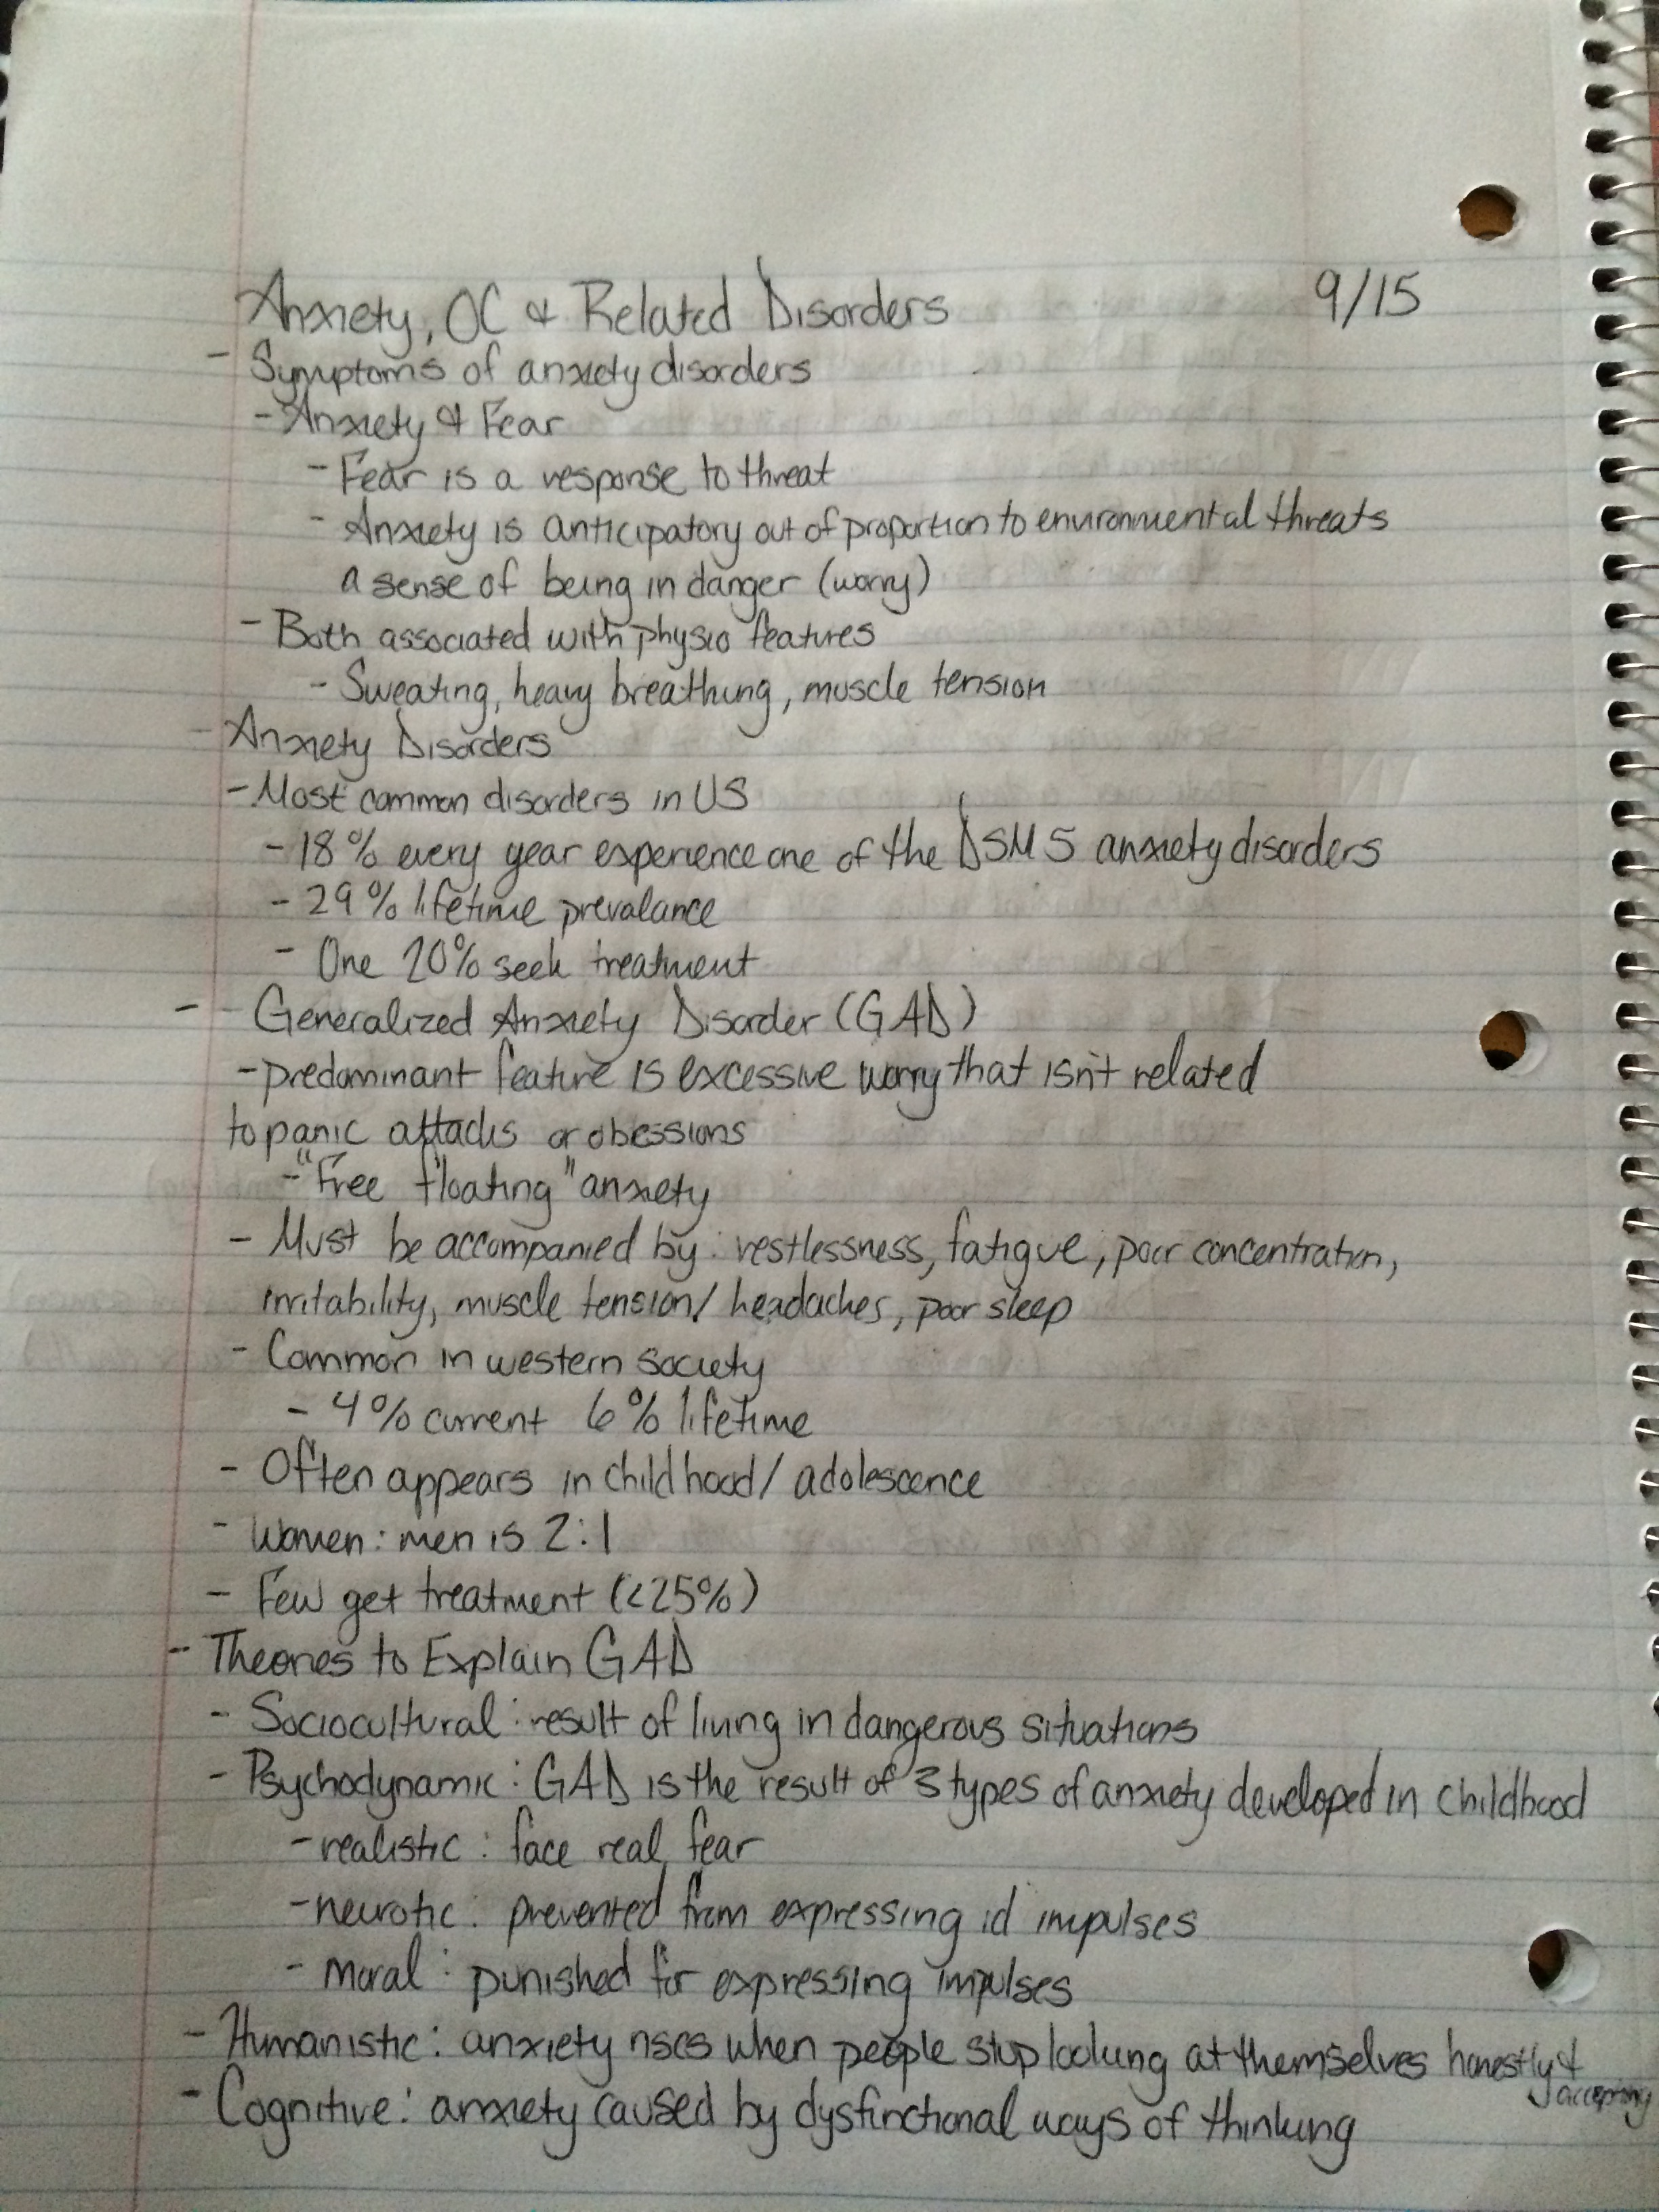 Anxiety, OC & Related Disorders 9/15
- Symptoms of anxiety disorders
- Anxiety & Fear
- Fear is a response to threat
- Anxiety is anticipatory out of proportion to environmental threats
a sense of being in danger (worry)
- Both associated with physio features
- Sweating, heavy breathing, muscle tension
- Anxiety Disorders
- Most common disorders in US
- 18% every year experience one of the DSM 5 anxiety disorders
- 29% lifetime prevalance
- One 20% seek treatment
- - Generalized Anxiety Disorder (GAD)
- predominant feature is excessive worry that isn't related
to panic attacks or obessions
- "Free floating" anxiety
- Must be accompanied by: restlessness, fatigue, poor concentration,
irritability, muscle tension/ headaches, poor sleep
- Common in western society
- 4% current 6% lifetime
- Often appears in childhood/ adolescence
- Women: men is 2:1
- Few get treatment (<25%)
- Theories to Explain GAD
- Sociocultural: result of living in dangerous situations
- Psychodynamic: GAD is the result of 3 types of anxiety developed in childhood
- realistic: face real fear
- neurotic: prevented from expressing id impulses
- moral: punished for expressing impulses
- Humanistic: anxiety rises when people stop looking at themselves honestly &
accepting
- Cognitive: anxiety caused by dysfunctional ways of thinking